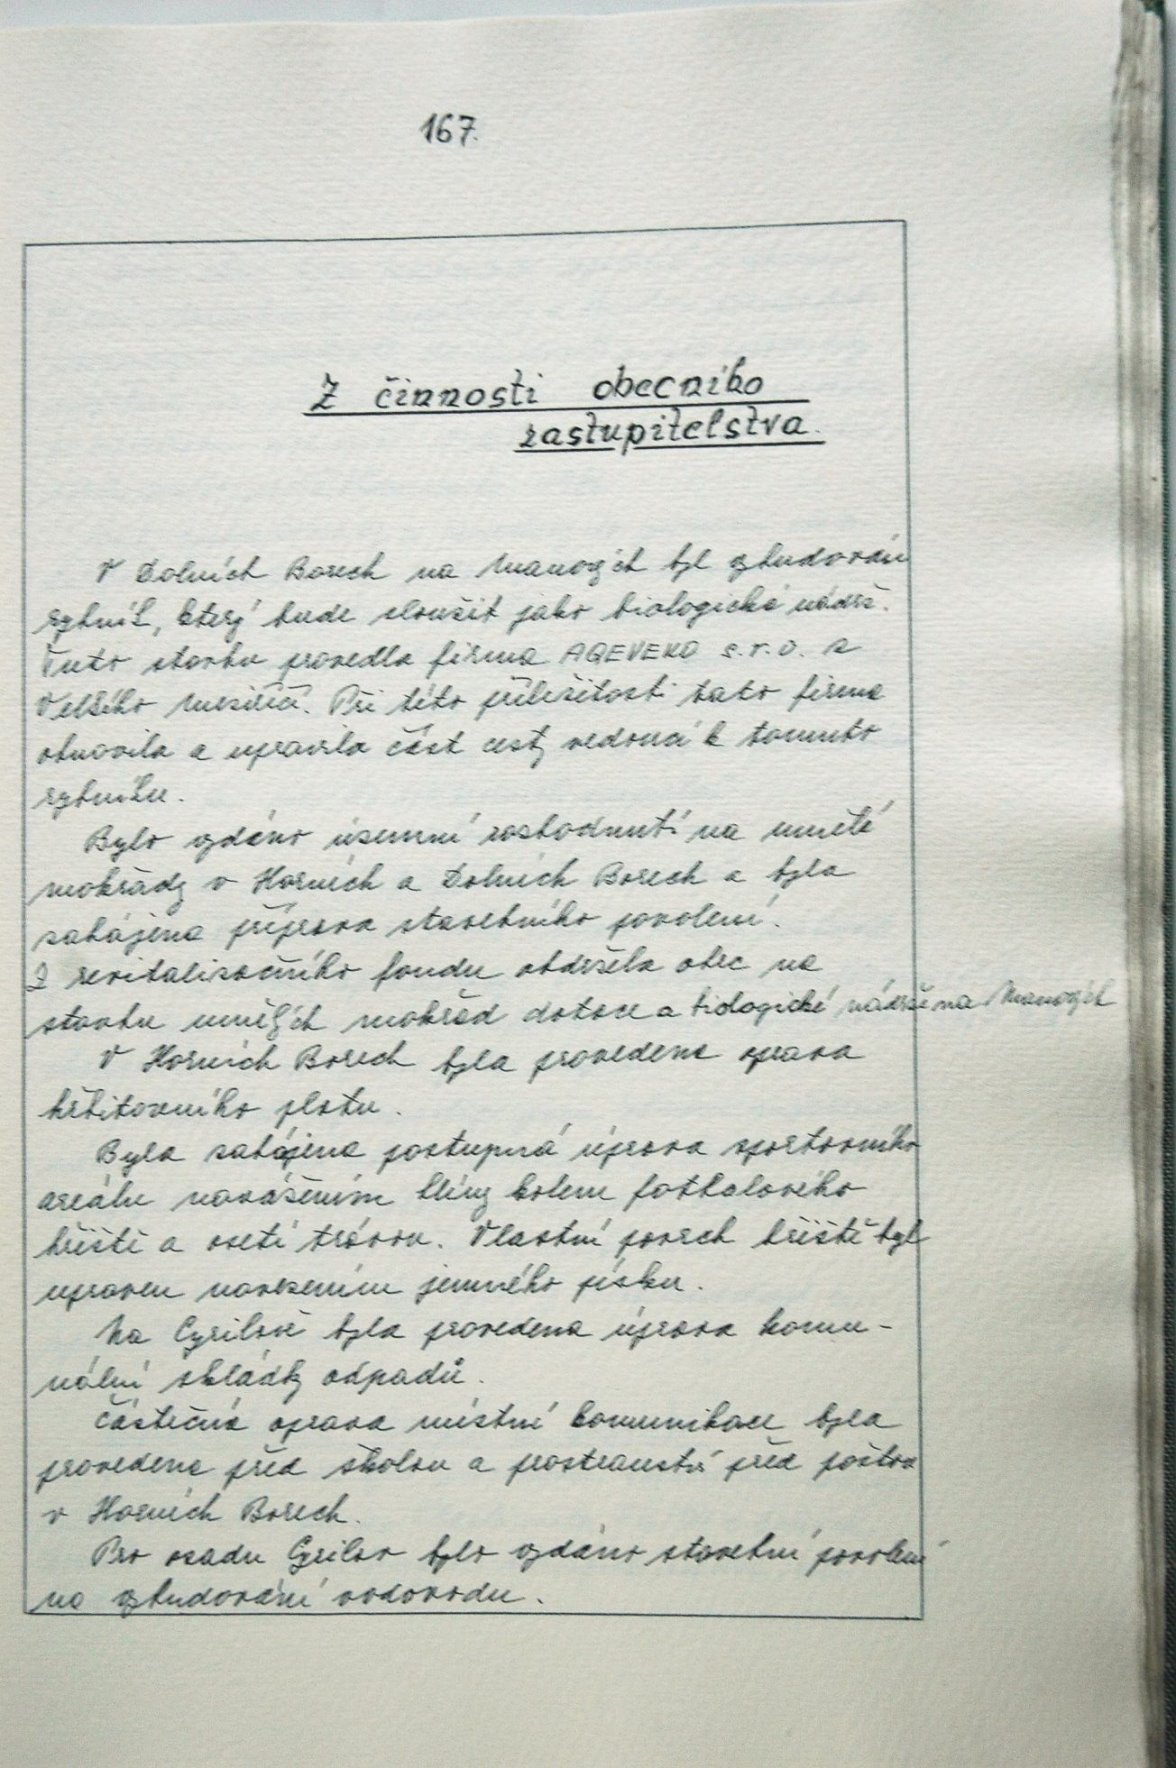 167.
Z činnosti obecního
zastupitelstva.
V Dolních Borech na Manových byl vybudován
rybník, který bude sloužit jako biologická nádrž.
Tuto stavbu provedla firma AQEVEKO s.r.o. z
Velkého Meziříčí. Při této příležitosti tato firma
obnovila a upravila část cesty vedoucí k tomuto
rybníku.
Bylo vydáno územní rozhodnutí na umělé
mokřady v Horních a Dolních Borech a byla
zahájena příprava stavebního povolení.
Z revitalizačního fondu obdržela obec na
stavbu umělých mokřad dotace a biologické nádrže na Manových
V Horních Borech byla provedena oprava
hřbitovního plotu.
Byla zahájena postupná úprava sportovního
areálu navážením hlíny kolem fotbalového
hřiště a osetí trávou. Vlastní povrch hřiště byl
upraven navezením jemného písku.
Na Cyrilově byla provedena úprava komu-
nální skládky odpadů.
Částečná oprava místní komunikace byla
provedena před školou a prostranství před poštou
v Horních Borech.
Pro osadu Cyrilov bylo vydáno stavební povolení
na vybudování vodovodu.